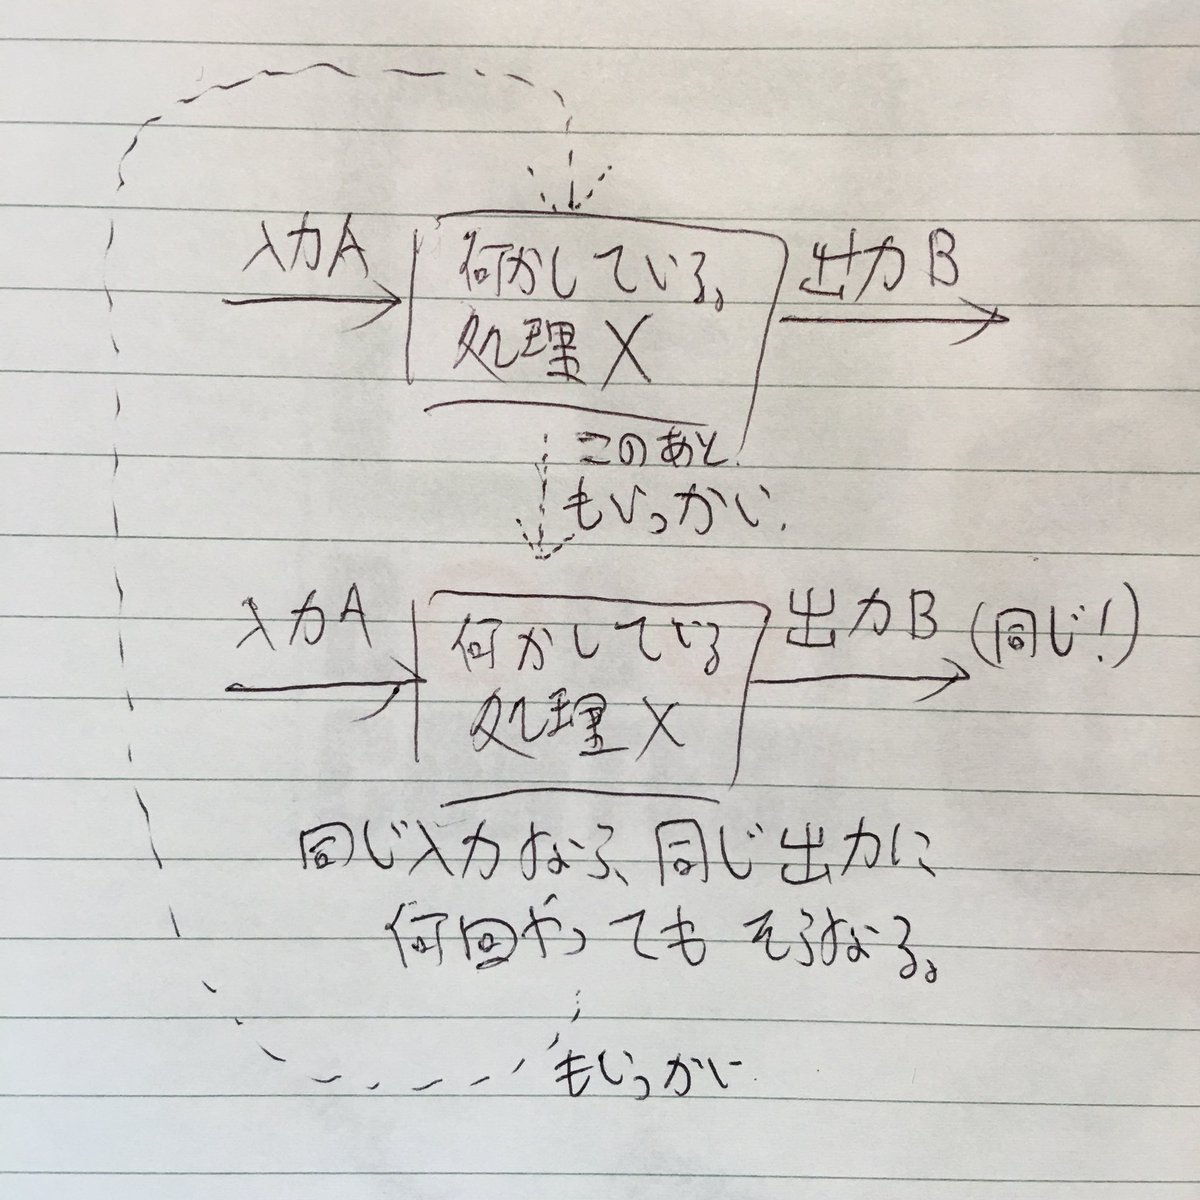 入力A
何かしている。
処理X
出力B
このあと
もいっかい.
入力A
何かしている
処理X
出力B (同じ!)
同じ入力なら、同じ出力に
何回やっても そうなる。
もいっかい